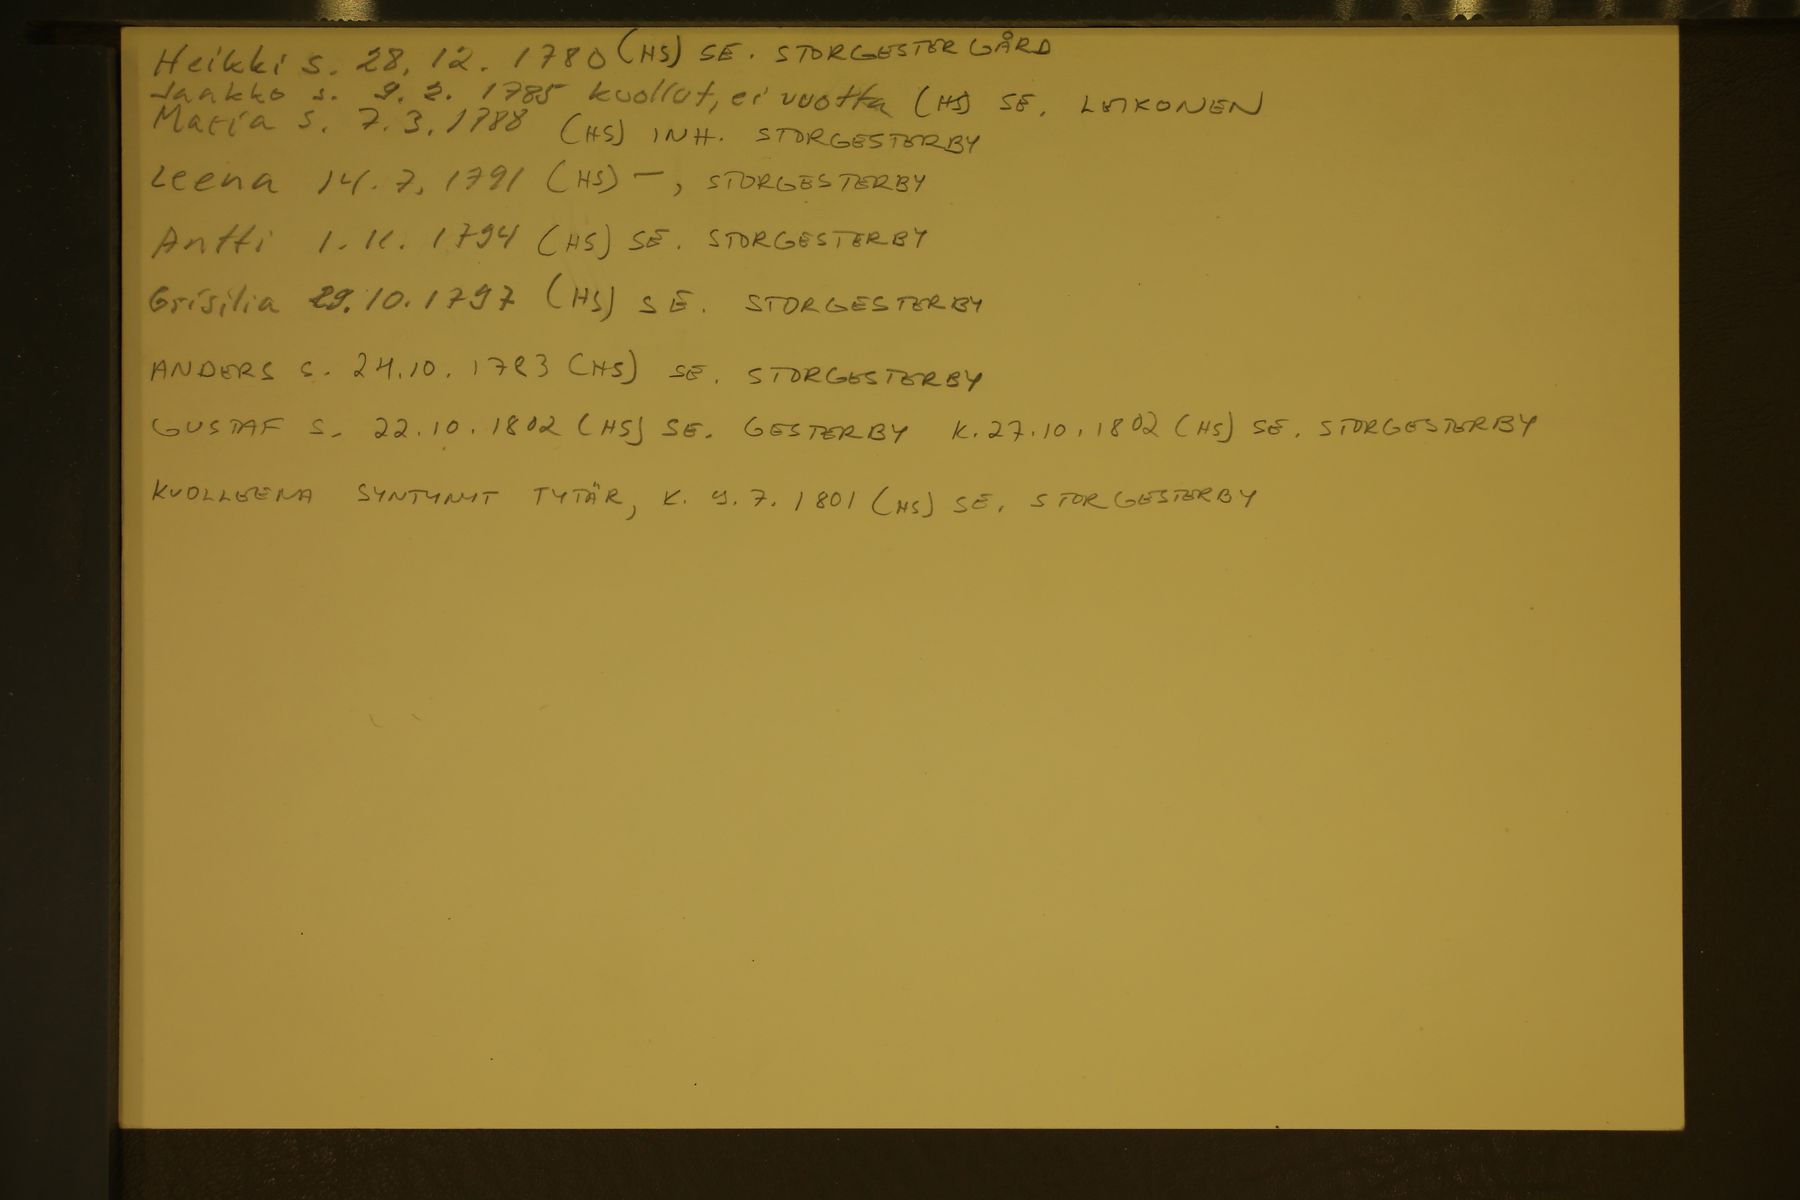 Heikki s. 28. 12. 1780 (HS) SE. STORGESTER GÅRD
Jaakko s. 9. 2. 1785 kuollut, ei vuotta (HS) SE. LEIKONEN
Maria s. 7. 3. 1788 (HS) INH. STORGESTERBY
Leena 14. 7. 1791 (HS) —, STORGESTERBY
Antti 1. 11. 1794 (HS) SE. STORGESTERBY
Grisilia 29. 10. 1797 (HS) SE. STORGESTERBY
ANDERS S. 24.10. 1783 (HS) SE. STORGESTERBY
GUSTAF S. 22.10. 1802 (HS) SE. GESTERBY K. 27.10. 1802 (HS) SE. STORGESTERBY
KUOLLEENA SYNTYNYT TYTÄR, K. 9. 7. 1801 (HS) SE. STORGESTERBY